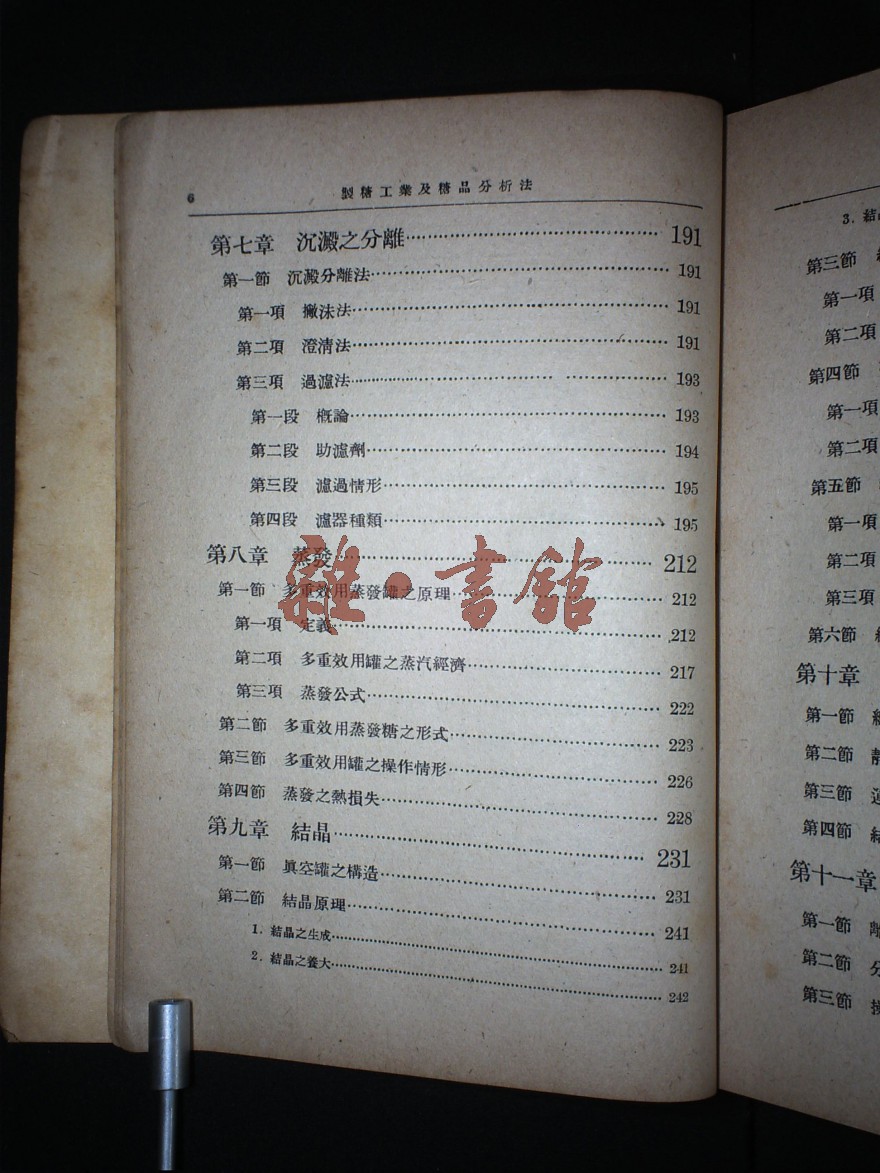 6 製糖工業及糖品分析法
第七章 沉澱之分離 191
第一節 沉澱分離法 191
第一項 撇沫法 191
第二項 澄清法 191
第三項 過濾法 193
第一段 概論 193
第二段 助濾劑 194
第三段 濾過情形 195
第四段 濾器種類 195
第八章 蒸發 212
第一節 多重效用蒸發罐之原理 212
第一項 定義 212
第二項 多重效用罐之蒸汽經濟 217
第三項 蒸發公式 222
第二節 多重效用蒸發糖之形式 223
第三節 多重效用罐之操作情形 226
第四節 蒸發之熱損失 228
第九章 結晶 231
第一節 眞空罐之構造 231
第二節 結晶原理 241
1. 結晶之生成 241
2. 結晶之養大 242
雜·書館
3. 結
第三節
第一項
第二項
第四節
第一項
第二項
第五節
第一項
第二項
第三項
第六節
第十章
第一節
第二節
第三節
第四節
第十一章
第一節
第二節
第三節